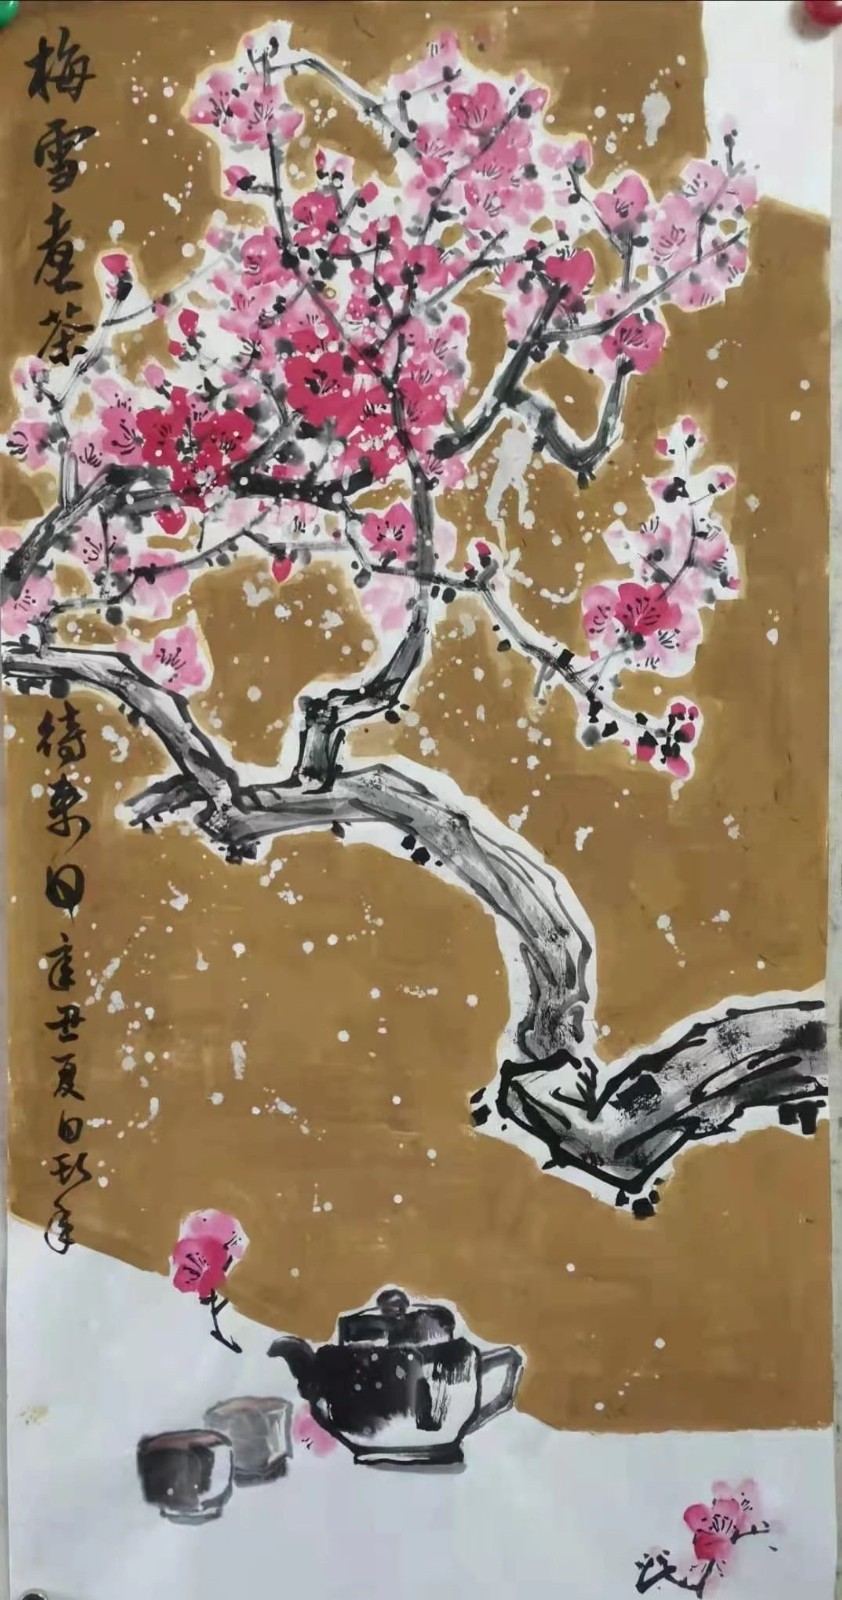 梅雪煮茶
待来日辛丑夏日